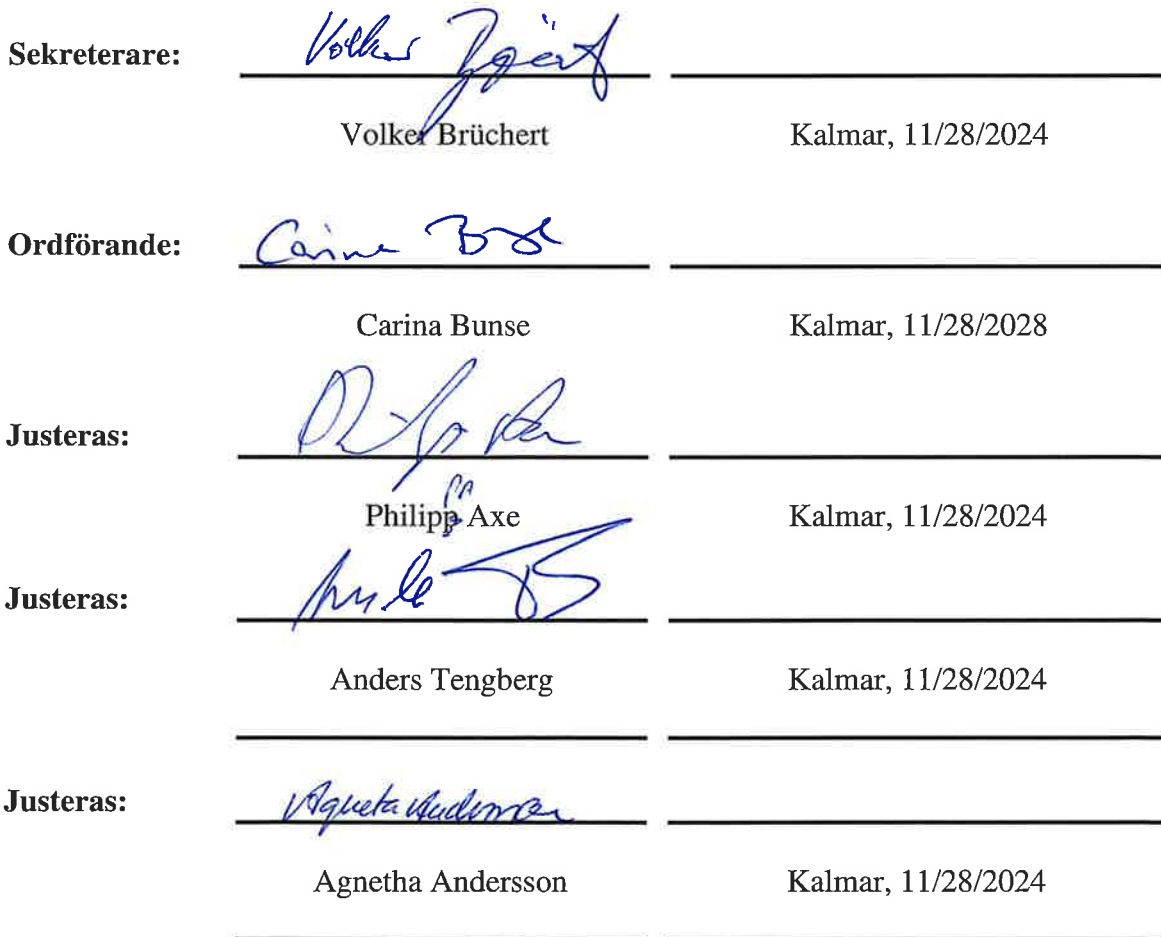 Sekreterare: Volker Brüchert
Volker Brüchert Kalmar, 11/28/2024
Ordförande: Carina Bunse
Carina Bunse Kalmar, 11/28/2028
Justeras:
Philipp Axe Kalmar, 11/28/2024
Justeras:
Anders Tengberg Kalmar, 11/28/2024
Justeras: Agneta Andersson
Agnetha Andersson Kalmar, 11/28/2024